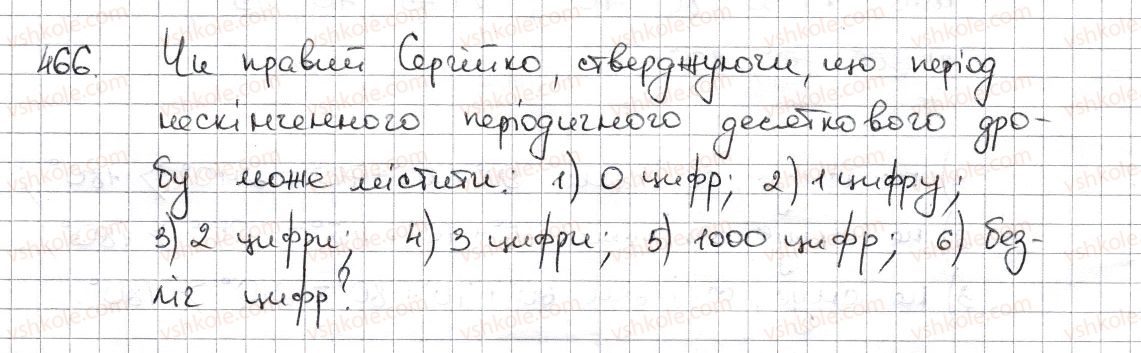 466. Чи правий Сергійко, стверджуючи, що період
нескінченного періодичного десяткового дро-
бу може містити: 1) 0 цифр; 2) 1 цифру;
3) 2 цифри; 4) 3 цифри; 5) 1000 цифр; 6) без-
ліч цифр?